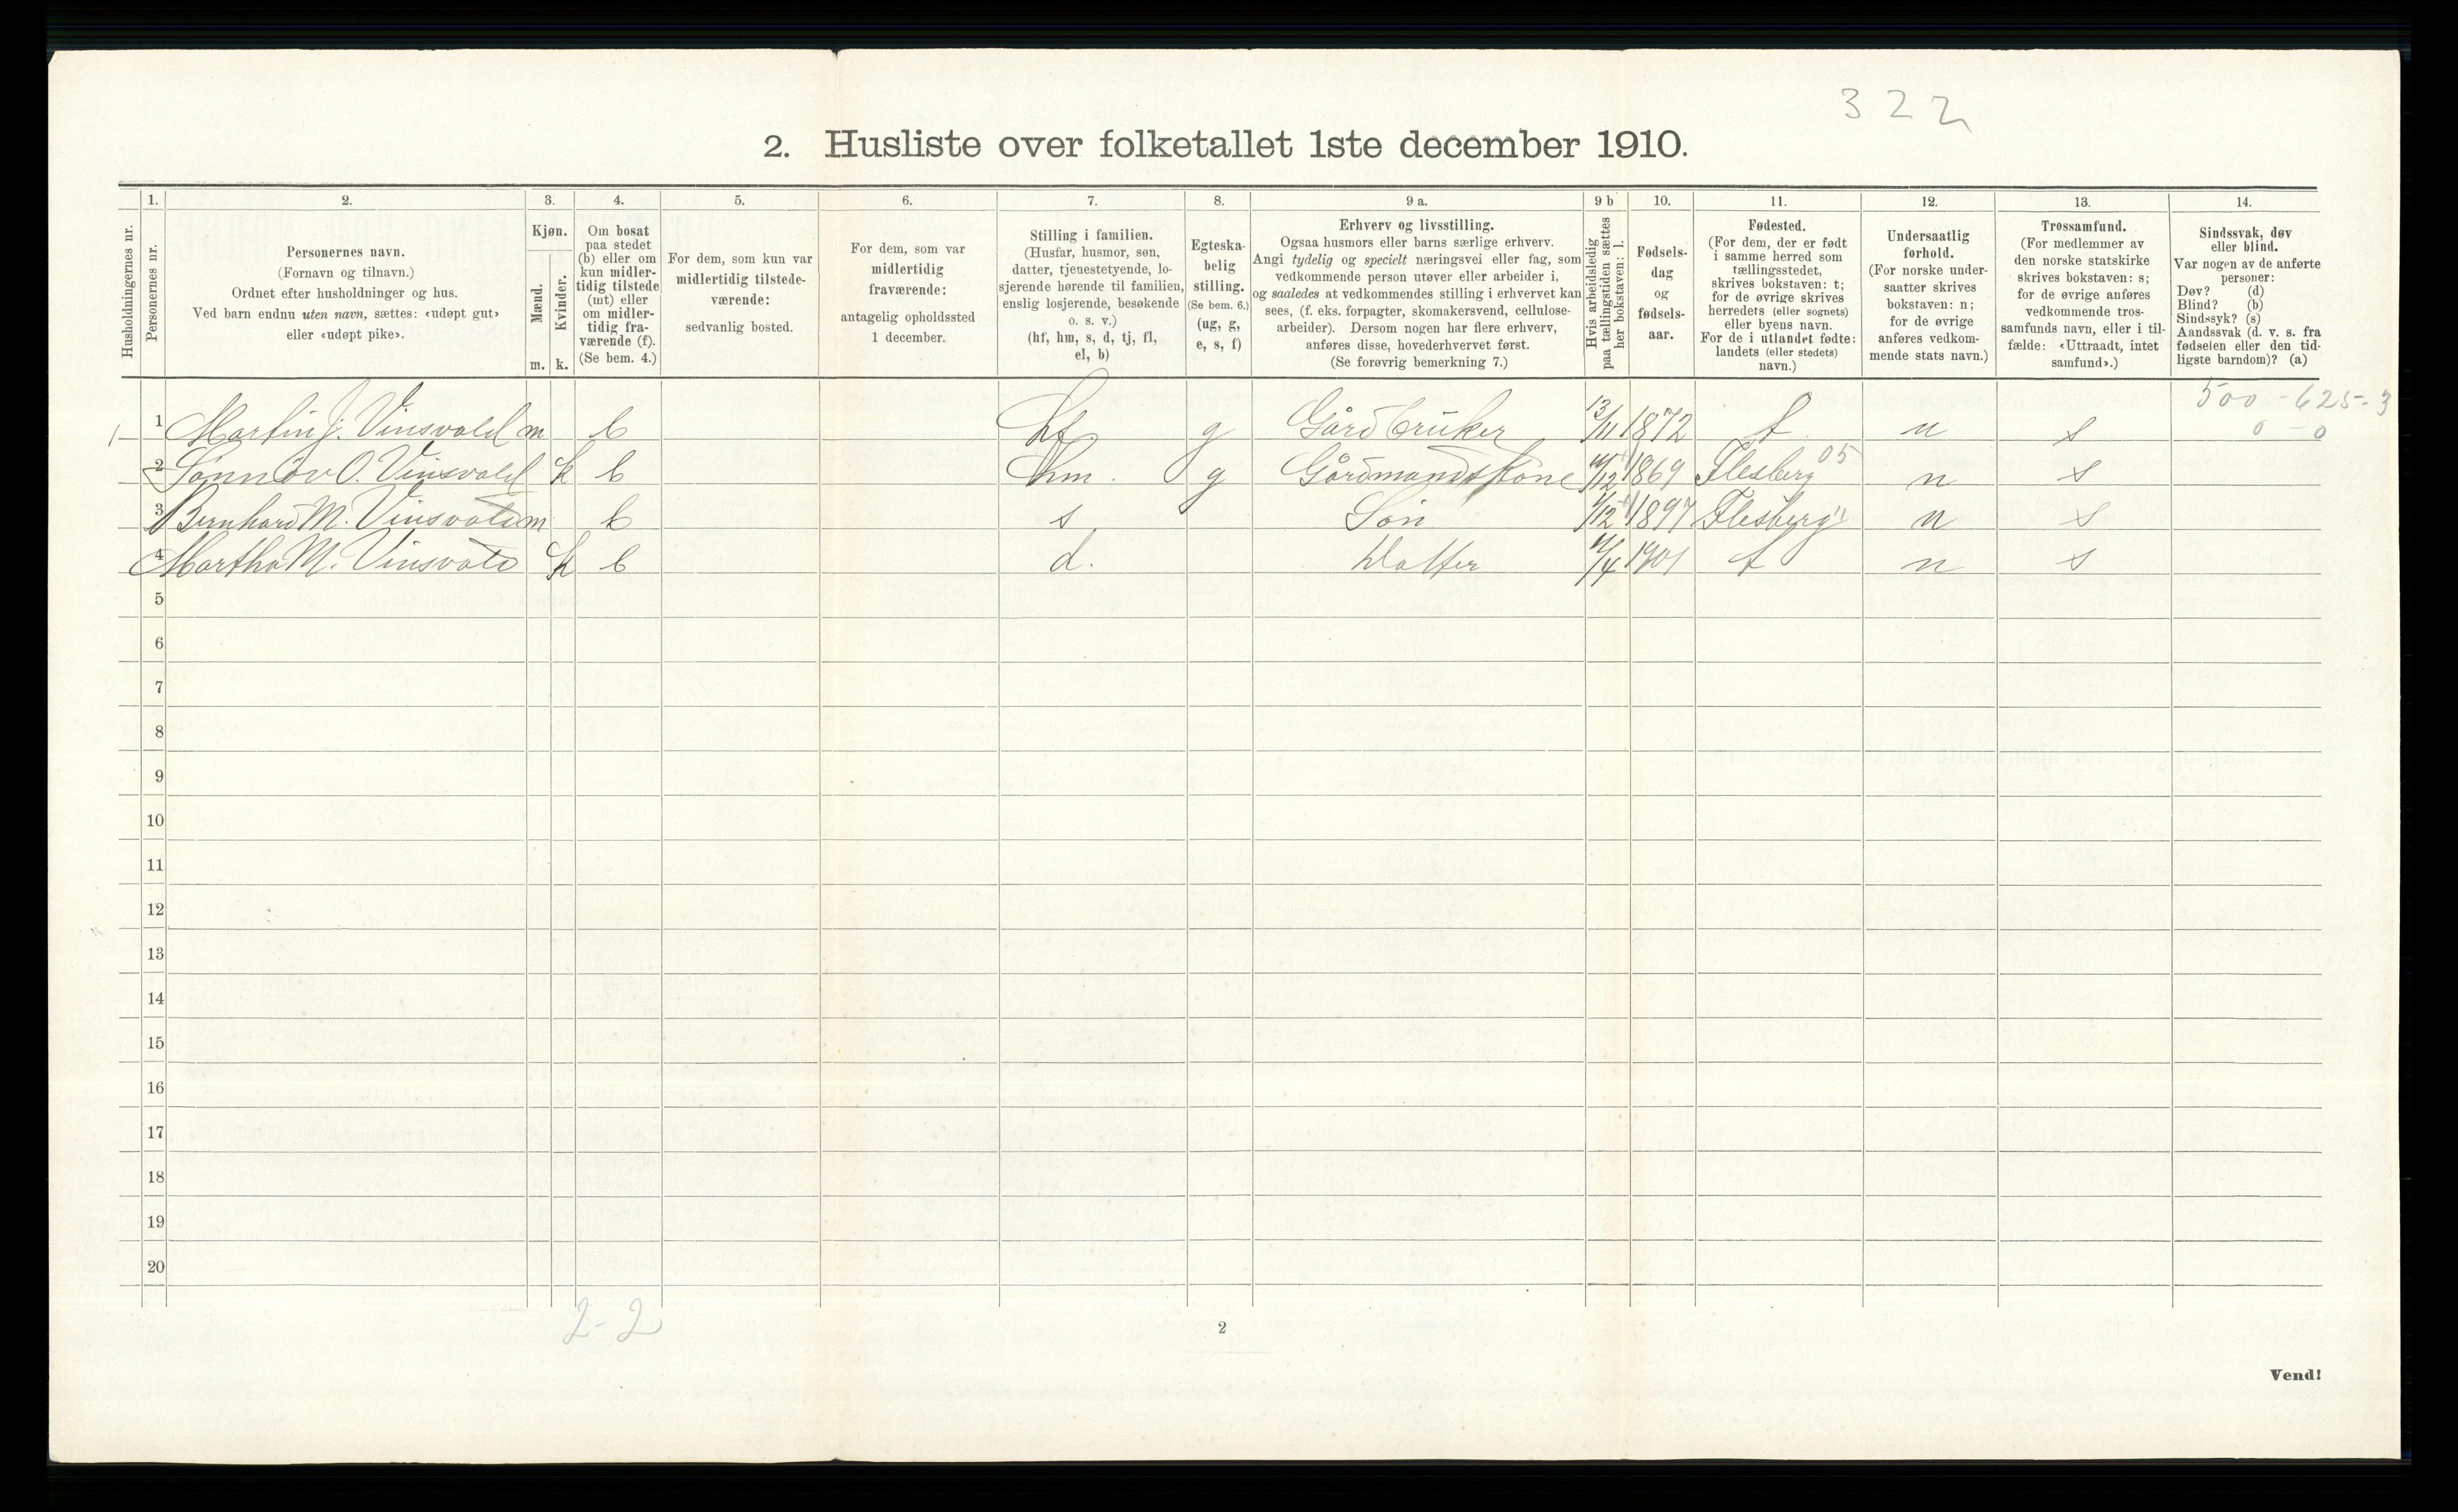 322
2. Husliste over folketallet 1ste december 1910.
Husholdningernes nr.
1.
Personernes nr.
2.
Personernes navn.
(Fornavn og tilnavn.)
Ordnet efter husholdninger og hus.
Ved barn endnu uten navn, sættes: «udøpt gut»
eller «udøpt pike».
3.
Kjøn.
Mænd.
m.
Kvinder.
k.
4.
Om bosat
paa stedet
(b) eller om
kun midler-
tidig tilstede
(mt) eller
om midler-
tidig fra-
værende (f).
(Se bem. 4.)
5.
For dem, som kun var
midlertidig tilstede-
værende:
sedvanlig bosted.
6.
For dem, som var
midlertidig
fraværende:
antagelig opholdssted
1 december.
7.
Stilling i familien.
(Husfar, husmor, søn,
datter, tjenestetyende, lo-
sjerende hørende til familien,
enslig losjerende, besøkende
o. s. v.)
(hf, hm, s, d, tj, fl,
el, b)
8.
Egteska-
belig
stilling.
(Se bem. 6.)
(ug, g,
e, s, f)
9 a.
Erhverv og livsstilling.
Ogsaa husmors eller barns særlige erhverv.
Angi tydelig og specielt næringsvei eller fag, som
vedkommende person utøver eller arbeider i,
og saaledes at vedkommendes stilling i erhvervet kan
sees, (f. eks. forpagter, skomakersvend, cellulose-
arbeider). Dersom nogen har flere erhverv,
anføres disse, hovederhvervet først.
(Se forøvrig bemerkning 7.)
9 b
Hvis arbeidsledig
paa tællingstiden sættes
her bokstaven: l.
10.
Fødsels-
dag
og
fødsels-
aar.
11.
Fødested.
(For dem, der er født
i samme herred som
tællingsstedet,
skrives bokstaven: t;
for de øvrige skrives
herredets (eller sognets)
eller byens navn.
For de i utlandet fødte:
landets (eller stedets)
navn.)
12.
Undersaatlig
forhold.
(For norske under-
saatter skrives
bokstaven: n;
for de øvrige
anføres vedkom-
mende stats navn.)
13.
Trossamfund.
(For medlemmer av
den norske statskirke
skrives bokstaven: s;
for de øvrige anføres
vedkommende tros-
samfunds navn, eller i til-
fælde: «Uttraadt, intet
samfund».)
14.
Sindssvak, døv
eller blind.
Var nogen av de anførte
personer:
Døv? (d)
Blind? (b)
Sindssyk? (s)
Aandssvak (d. v. s. fra
fødselen eller den tid-
ligste barndom)? (a)
500 - 625 - 3
0 - 0
1 1 Martin J. Vinsvold m b hf g Gårdbruker 13/11 1872 t n s
2 Sønnøv O. Vinsvold k b hm. g Gårdmandskone 1869 Flesberg 05 n s
3 Bernhard M. Vinsvold m b s Søn 1/12 1897 Flesberg " n s
4 Martha M. Vinsvold k b d. Datter 1901 t n s
5
6
7
8
9
10
11
12
13
14
15
16
17
18
19
20
2-2
2
Vend!